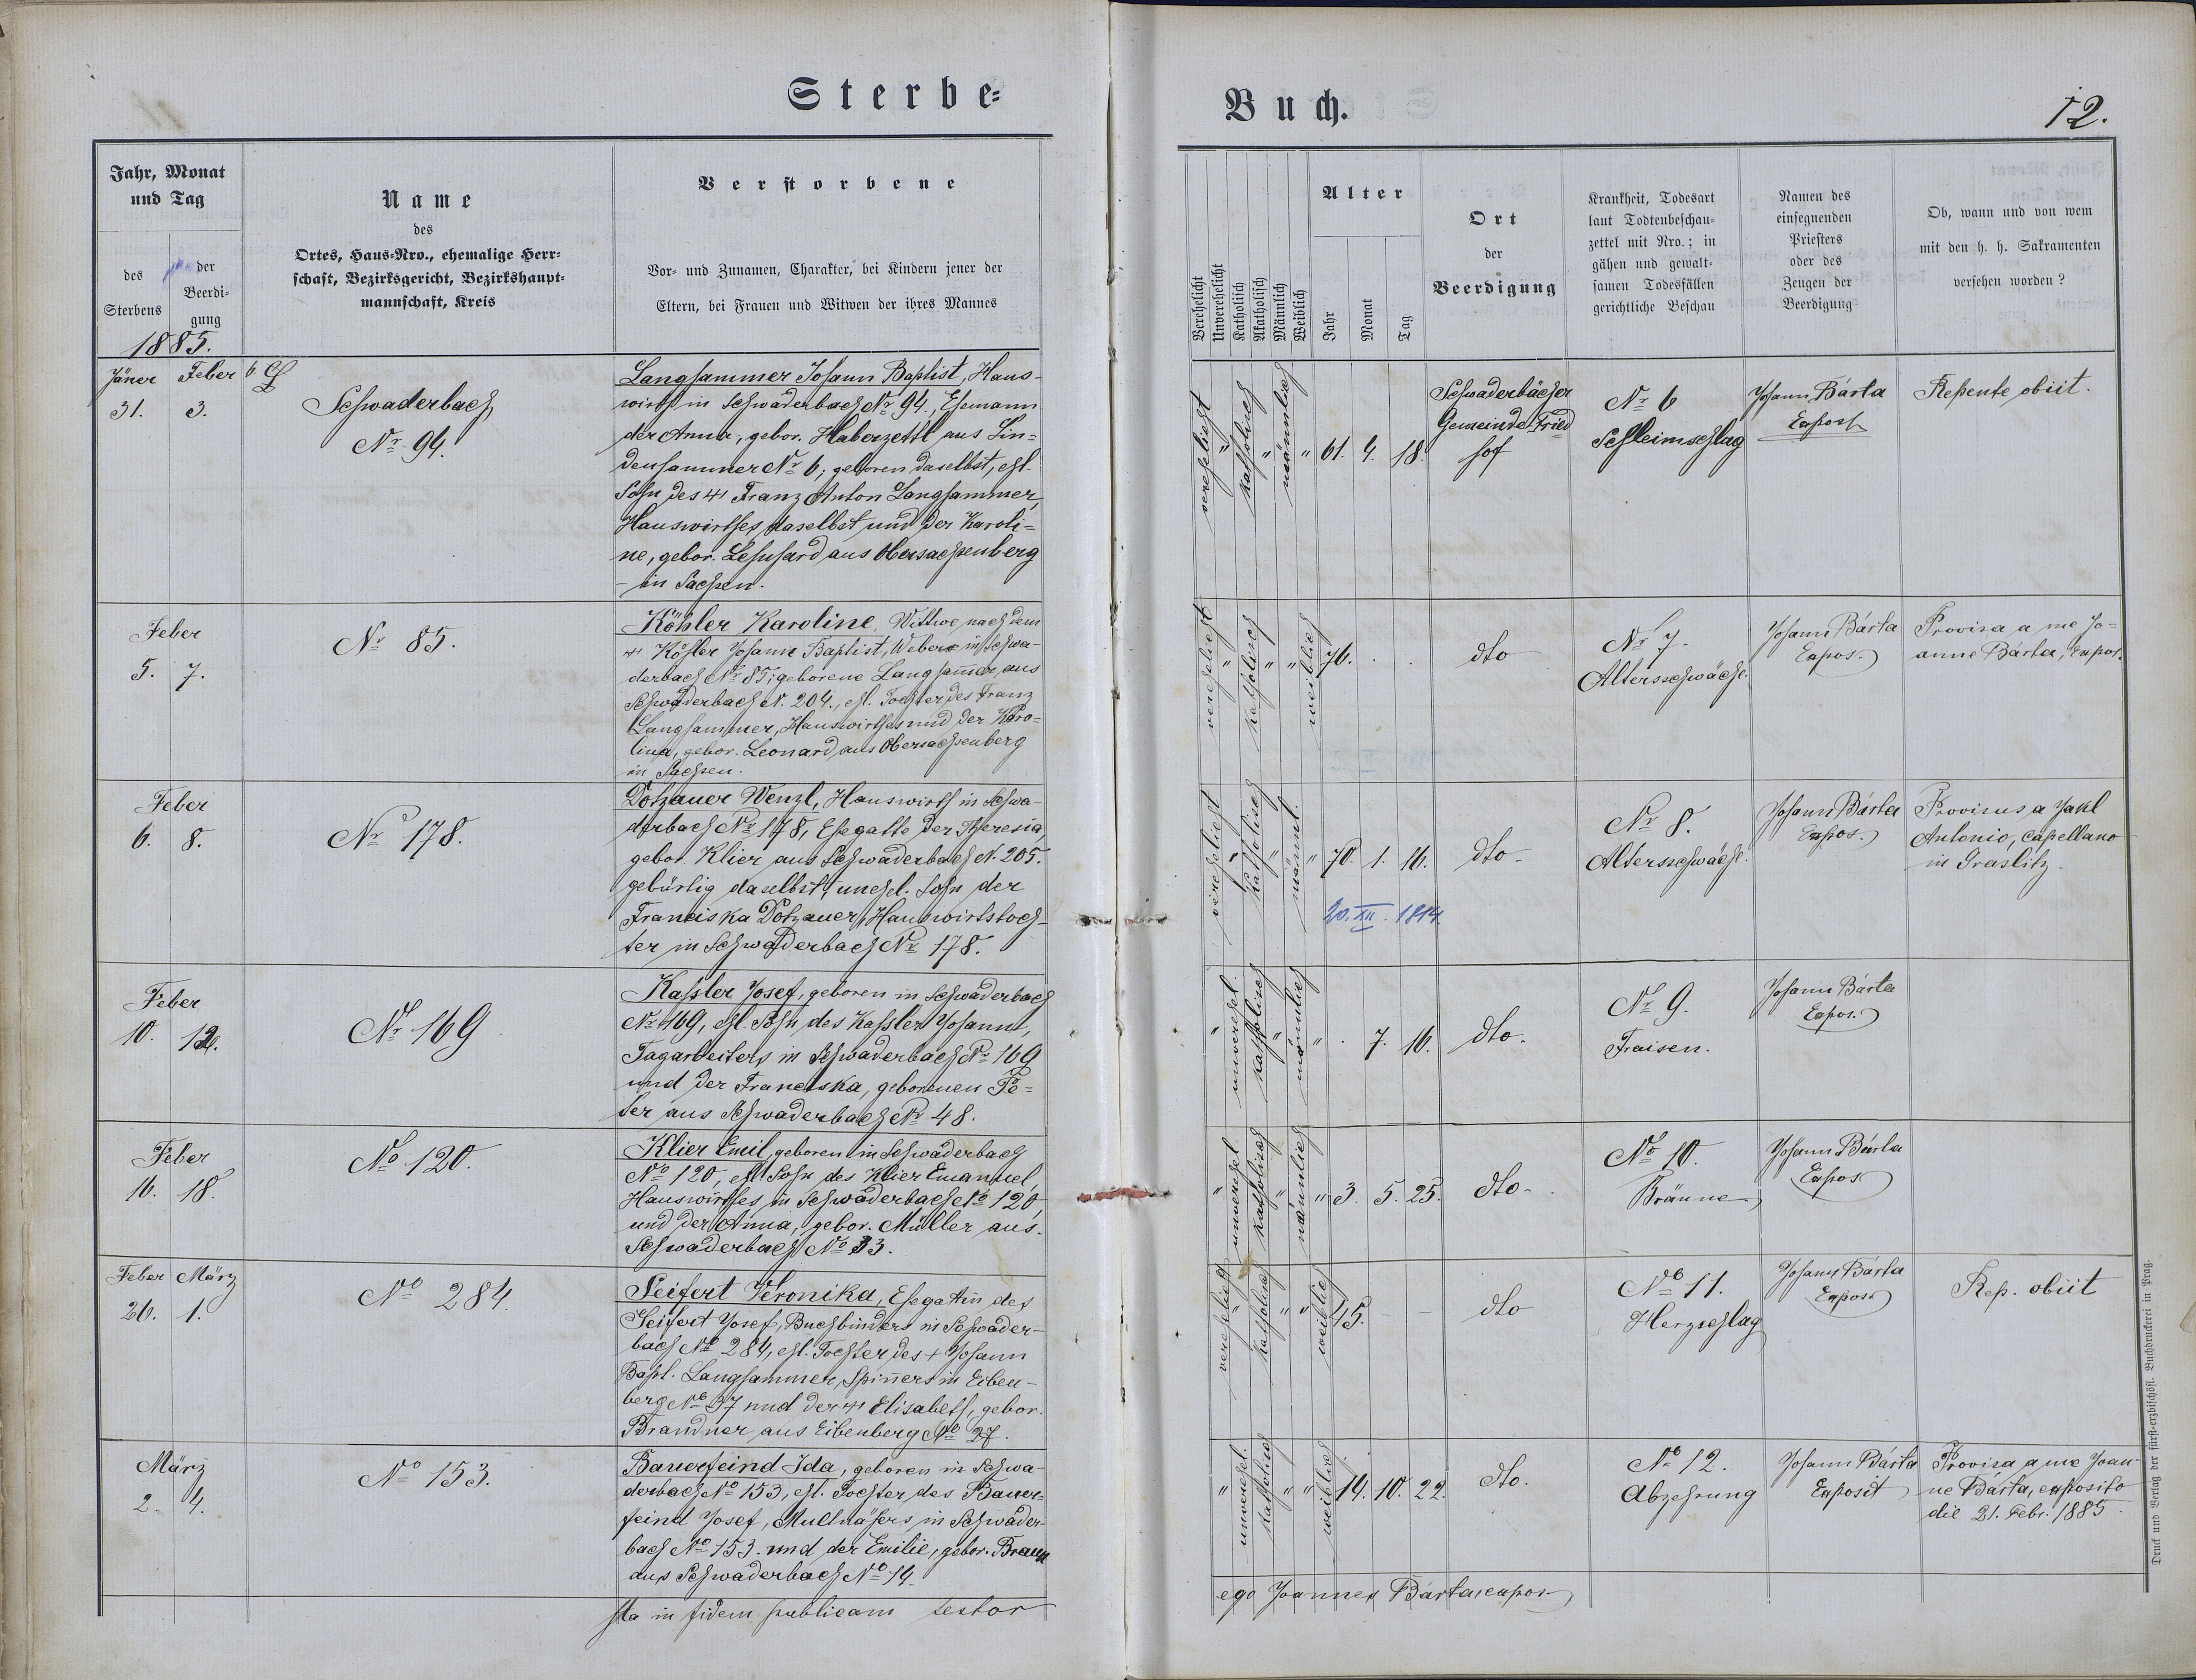 Sterbe=
Buch.
12.
Jahr, Monat
und Tag
des
Sterbens
der
Beerdi=
gung
1885.
Name
des
Ortes, Haus-Nro., ehemalige Herr=
schaft, Bezirksgericht, Bezirkshaupt=
mannschaft, Kreis
Verstorbene
Vor- und Zunamen, Charakter, bei Kindern jener der
Eltern, bei Frauen und Witwen der ihres Mannes
Verehelicht
Unverehelicht
Katholisch
Akatholisch
Männlich
Weiblich
Alter
Jahr
Monat
Tag
Ort
der
Beerdigung
Krankheit, Todesart
laut Todtenbeschau=
zettel mit Nro.; in
gähen und gewalt=
samen Todesfällen
gerichtliche Beschau
Namen des
einsegnenden
Priesters
oder des
Zeugen der
Beerdigung
Ob, wann und von wem
mit den h. h. Sakramenten
versehen worden?
Jäner Feber
31. 3.
Schwaderbach
Nr. 94.
Langhammer Johann Baptist, Haus-
wirth in Schwaderbach Nr. 94., Ehemann
der Anna, gebor. Haberzettl aus Lin=
denhammer Nr. 6; geboren daselbst, ehl.
Sohn des + Franz Anton Langhammer,
Hauswirthes daselbst und der Karoli=
ne, gebor. Lehnhard aus Obersachsenberg
in Sachsen.
verehelicht " katholisch " männlich " 61. 4. 18.
Schwaderbächer
Gemeinde-Fried
hof
Nr. 6
Schleimschlag
Johann Bárta
Expost
Repente obiit.
Feber
5. 7.
Nr. 85.
Köhler Karoline, Wittwe nach dem
+ Köhler Johann Baptist, Webers in Schwa-
derbach Nr. 85; geborene Langham̄er aus
Schwaderbach N. 204., ehl. Tochter des Franz
Langhammer, Hauswirthes und der Karo=
lina, gebor. Leonard aus Obersachsenberg
in Sachsen.
verehelicht " katholisch " " weiblich 76. . .
dto
Nr. 7.
Altersschwäche.
Johann Bárta
Expos.
Provisa a me Jo=
anne Bárta, expos.
Feber
6. 8.
Nr. 178.
Dotzauer Wenzl, Hauswirth in Schwa-
derbach Nr. 178, Ehegatte der Theresia
gebor. Klier aus Schwaderbach N. 205.
gebürtig daselbst, unehel. Sohn der
Franciska Dotzauer, Hauswirthstoch-
ter in Schwaderbach Nr. 178.
verehelicht " katholisch " männl. " 70. 1. 16.
20. XII. 1814.
dto.
Nr. 8.
Altersschwäche.
Johann Bárta
Expos.
Provisus a Jakl
Antonio, capellano
in Graslitz.
Feber
10. 12.
Nr. 169
Kassler Josef, geboren in Schwaderbach
Nr. 169, ehl. Sohn des Kassler Johann,
Tagarbeiters in Schwaderbach Nr. 169
und der Franciska, geborenen Pe=
ter aus Schwaderbach Nr. 48.
" unverehel. katholisch " männlich " . 7. 16.
dto.
Nr. 9.
Fraisen.
Johann Bárta
Expos.
Feber
16. 18.
No. 120.
Klier Emil, geboren in Schwaderbach
No. 120, ehl. Sohn des Klier Emanuel,
Hauswirthes in Schwaderbach No. 120,
und der Anna, gebor. Müller aus
Schwaderbach No. 33.
" unverehel. katholisch " männlich " 3. 5. 25.
dto.
No. 10.
Bräune
Johann Bárta
Expos.
Feber März
26. 1.
No. 284.
Seifert Veronika, Ehegattin des
Seifert Josef, Buchbinders in Schwader-
bach No. 284, ehl. Tochter des + Johann
Bapt. Langhammer, Spin̄ers in Eiben-
berg No. 97 und der + Elisabeth, gebor.
Brandner aus Eibenberg No. 27.
verehelicht " katholisch " " weiblich 45. – –
dto
No. 11.
Herzschlag
Johann Bárta
Expos.
Rep. obiit
März
2. 4.
No. 153.
Bauerfeind Ida, geboren in Schwa-
derbach No. 153, ehl. Tochter des Bauer=
feind Josef, Mullnähers in Schwader-
bach No. 153. und der Emilie, gebor. Braun
aus Schwaderbach No. 14.
" unverehel. katholisch " " weiblich 14. 10. 22.
dto.
No. 12.
Abzehrung
Johann Bárta
Exposit
Provisa a me Joan-
ne Bárta, exposito
die 21. Febr. 1885.
Ita in fidem publicam testor
ego Joannes Bárta, expos.
Druck und Verlag der fürst-erzbischöfl. Buchdruckerei in Prag.